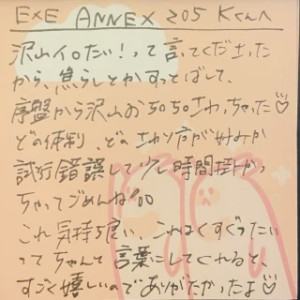 EXE ANNEX 205 Kくんへ
沢山イロたい!って言ってくださった
から、焦らしとかすっとばして、
序盤から沢山おちちさわっちゃった♡
どの体制、どのさわり方が好みか
試行錯誤して少し時間掛かっ
ちゃってごめんね!
これ気持ち良い、これはくすぐったい
ってちゃんと言葉にしてくれると、
すごく嬉しいのでありがたかったよ♡